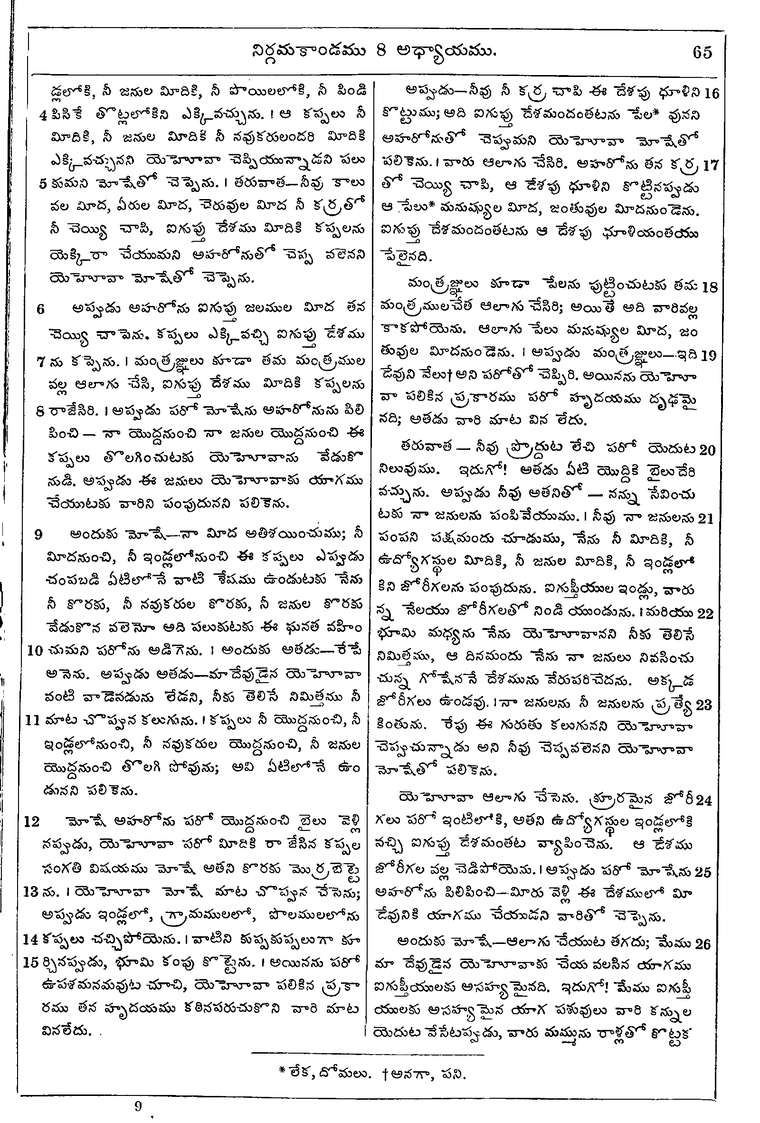 నిర్గమకాండము 8 అధ్యాయము.
65
డ్లలోకి, నీ జనుల మీదికి, నీ పొయిలలోకి, నీ పిండి
4 పిసికే తొట్లలోకిని ఎక్కివచ్చును. । ఆ కప్పలు నీ
మీదికి, నీ జనుల మీదికి నీ నవుకరులందరి మీదికి
ఎక్కివచ్చునని యెహోవా చెప్పియున్నాడని పలు
5 కుమని మోషేతో చెప్పెను. । తరువాత—నీవు కాలు
వల మీద, ఏరుల మీద, చెరువుల మీద నీ కర్రతో
నీ చెయ్యి చాపి, ఐగుప్తు దేశము మీదికి కప్పలను
యెక్కిరా చేయుమని అహరోనుతో చెప్ప వలెనని
యెహోవా మోషేతో చెప్పెను.
6 అప్పుడు అహరోను ఐగుప్తు జలముల మీద తన
చెయ్యి చాపెను. కప్పలు ఎక్కివచ్చి ఐగుప్తు దేశము
7 ను కప్పెను. । మంత్రజ్ఞులు కూడా తమ మంత్రముల
వల్ల ఆలాగు చేసి, ఐగుప్తు దేశము మీదికి కప్పలను
8 రాజేసిరి. । అప్పుడు పరో మోషేను అహరోనును పిలి
పించి — నా యొద్దనుంచి నా జనుల యొద్దనుంచి ఈ
కప్పలు తొలగించుటకు యెహోవాను వేడుకొ
నుడి. అప్పుడు ఈ జనులు యెహోవాకు యాగము
చేయుటకు వారిని పంపుదునని పలికెను.
9 అందుకు మోషే—నా మీద అతిశయించుము; నీ
మీదనుంచి, నీ ఇండ్లలోనుంచి ఈ కప్పలు ఎప్పుడు
చంపబడి ఏటిలోనే వాటి శేషము ఉండుటకు నేను
నీ కొరకు, నీ నవుకరుల కొరకు, నీ జనుల కొరకు
వేడుకొన వలెనో అది పలుకుటకు ఈ ఘనత వహిం
10 చుమని పరోను అడిగెను. । అందుకు అతడు—రేపే
అనెను. అప్పుడు అతడు—మా దేవుడైన యెహోవా
వంటి వాడెవడును లేడని, నీకు తెలిసే నిమిత్తము నీ
11 మాట చొప్పున కలుగును. । కప్పలు నీ యొద్దనుంచి, నీ
ఇండ్లలోనుంచి, నీ నవుకరుల యొద్దనుంచి, నీ జనుల
యొద్దనుంచి తొలగి పోవును; అవి ఏటిలోనే ఉం
డునని పలికెను.
12 మోషే అహరోను పరో యొద్దనుంచి బైలు వెళ్లి
నప్పుడు, యెహోవా పరో మీదికి రా జేసిన కప్పల
సంగతి విషయము మోషే అతని కొరకు మొర్రబెట్టె
13 ను. । యెహోవా మోషే మాట చొప్పున చేసెను;
అప్పుడు ఇండ్లలో, గ్రామములలో, పొలములలోను
14 కప్పలు చచ్చిపోయెను. । వాటిని కుప్పకుప్పలుగా కూ
15 ర్చినప్పుడు, భూమి కంపు కొట్టెను. । అయినను పరో
ఉపశమనమవుట చూచి, యెహోవా పలికిన ప్రకా
రము తన హృదయము కఠినపరుచుకొని వారి మాట
వినలేదు.
అప్పుడు—నీవు నీ కర్ర చాపి ఈ దేశపు ధూళిని 16
కొట్టుము; అది ఐగుప్తు దేశమందంతటను పేల* వునని
అహరోనుతో చెప్పుమని యెహోవా మోషేతో
పలికెను. । వారు ఆలాగు చేసిరి. అహరోను తన కర్ర 17
తో చెయ్యి చాపి, ఆ దేశపు ధూళిని కొట్టినప్పుడు
ఆ పేలు* మనుష్యుల మీద, జంతువుల మీదనుండెను.
ఐగుప్తు దేశమందంతటను ఆ దేశపు ధూళియంతయు
పేలైనది.
మంత్రజ్ఞులు కూడా పేలను పుట్టించుటకు తమ 18
మంత్రములచేత ఆలాగు చేసిరి; అయితే అది వారివల్ల
కాకపోయెను. ఆలాగు పేలు మనుష్యుల మీద, జం
తువుల మీదనుండెను. । అప్పుడు మంత్రజ్ఞులు—ఇది 19
దేవుని వేలు† అని పరోతో చెప్పిరి. అయినను యెహో
వా పలికిన ప్రకారము పరో హృదయము దృఢమై
నది; అతడు వారి మాట విన లేదు.
తరువాత — నీవు ప్రొద్దుట లేచి పరో యెదుట 20
నిలువుము. ఇదుగో! అతడు ఏటి యొద్దికి బైలుదేరి
వచ్చును. అప్పుడు నీవు అతనితో — నన్ను సేవించు
టకు నా జనులను పంపివేయుము. । నీవు నా జనులను 21
పంపని పక్షమందు చూడుము, నేను నీ మీదికి, నీ
ఉద్యోగస్థుల మీదికి, నీ జనుల మీదికి, నీ ఇండ్లలో
కిని జోరీగలను పంపుదును. ఐగుప్తీయుల ఇండ్లు, వారు
న్న నేలయు జోరీగలతో నిండి యుండును. । మరియు 22
భూమి మధ్యను నేను యెహోవానని నీకు తెలిసే
నిమిత్తము, ఆ దినమందు నేను నా జనులు నివసించు
చున్న గోషేననే దేశమును వేరుపరిచెదను. అక్కడ
జోరీగలు ఉండవు. । నా జనులను నీ జనులను ప్రత్యే 23
కింతును. రేపు ఈ గురుతు కలుగునని యెహోవా
చెప్పుచున్నాడు అని నీవు చెప్పవలెనని యెహోవా
మోషేతో పలికెను.
యెహోవా ఆలాగు చేసెను. క్రూరమైన జోరీ 24
గలు పరో ఇంటిలోకి, అతని ఉద్యోగస్థుల ఇండ్లలోకి
నచ్చి ఐగుప్తు దేశమంతట వ్యాపించెను. ఆ దేశము
జోరీగల వల్ల చెడిపోయెను. । అప్పుడు పరో మోషేను 25
అహరోను పిలిపించి—మీరు వెళ్లి ఈ దేశములో మీ
దేవునికి యాగము చేయుడని వారితో చెప్పెను.
అందుకు మోషే—ఆలాగు చేయుట తగదు; మేము 26
మా దేవుడైన యెహోవాకు చేయ వలసిన యాగము
ఐగుప్తీయులకు అసహ్యమైనది. ఇదుగో! మేము ఐగుప్తీ
యులకు అసహ్యమైన యాగ పశువులు వారి కన్నుల
యెదుట వేసేటప్పుడు, వారు మమ్మును రాళ్లతో కొట్టక
* లేక, దోమలు. † అనగా, పని.
9